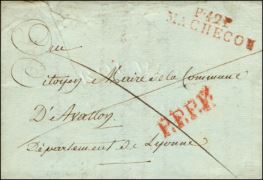 P.42.P
MACHECOU
Au
Citoyen Maire de la Commune
D'Avallon
P.P.P.P.
Département de Lyonne